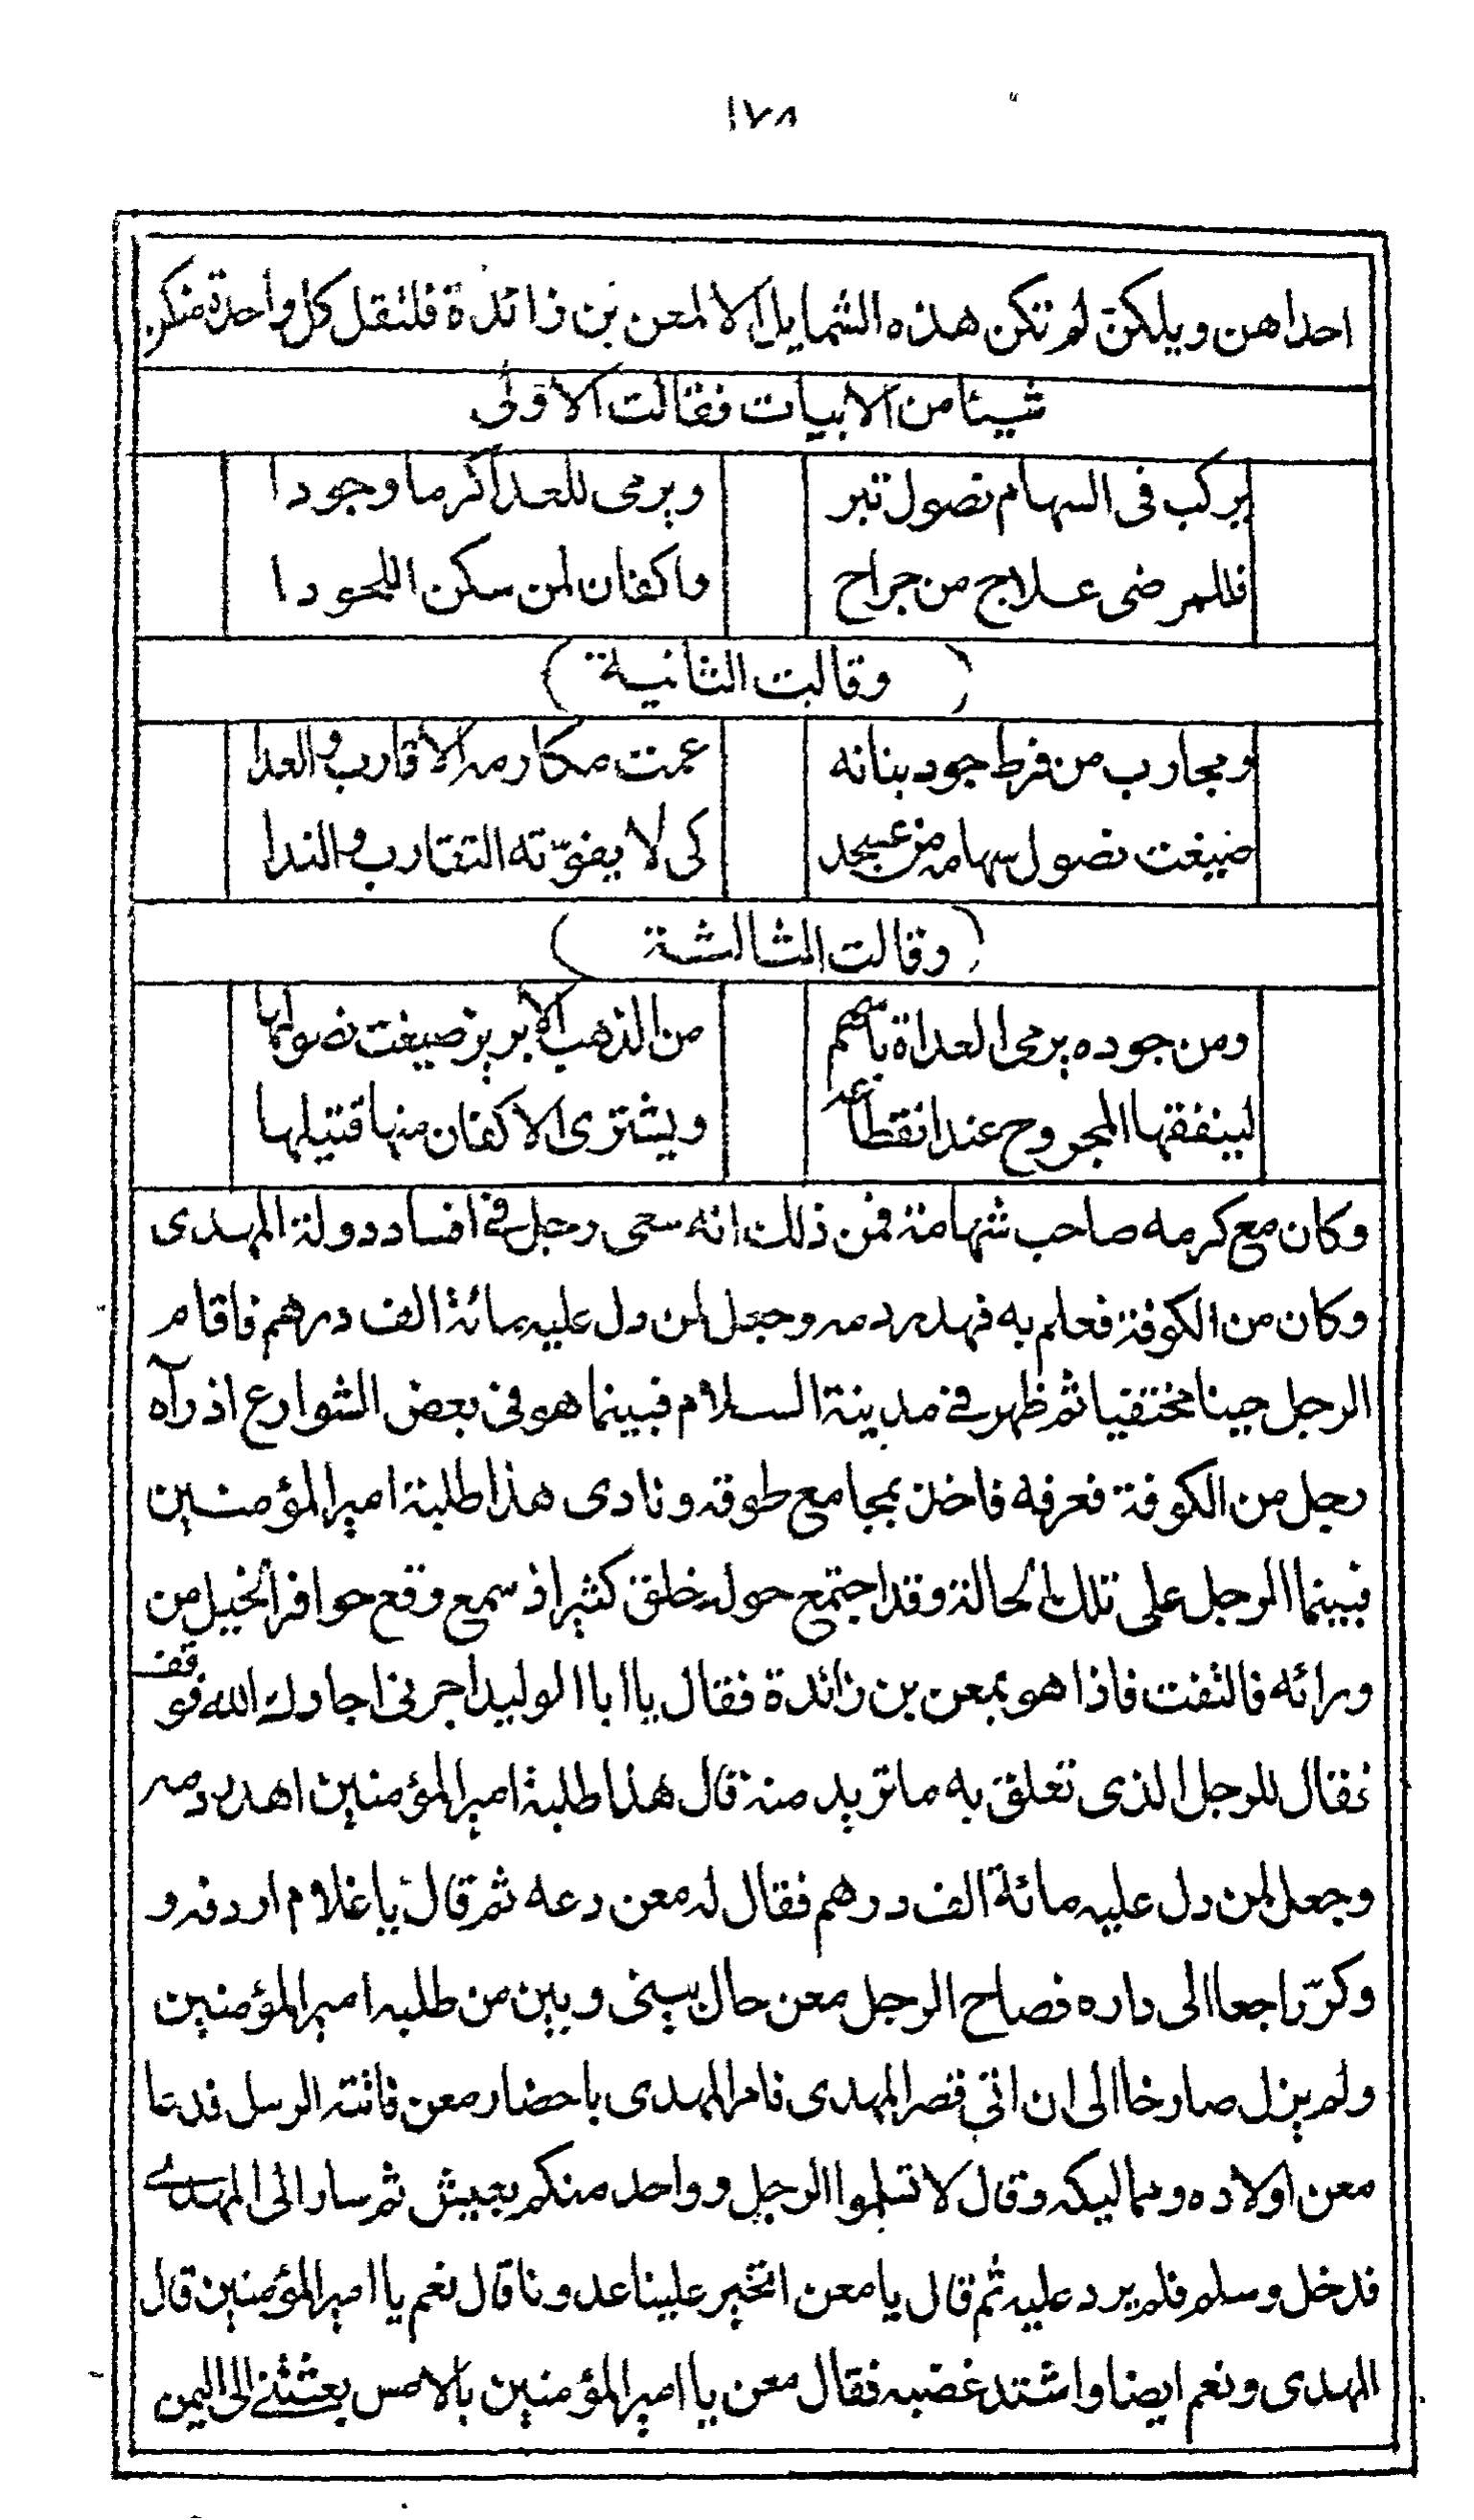 ١٧٨
احداهن ويلكن لم تكن هذه الشمايل الا لمعن بن زائدة فلتقل كل واحدة منكن
شيئا من الابيات فقالت الاولى
يركب فى السهام نصول تبر ويرمى للعدا كرما وجودا
فللمرضى علاج من جراح واكفان لمن سكن اللحودا
(وقالت الثانية)
ومحارب من فرط جود بنانه عمت مكارمه الاقارب والعدا
صيغت نصول سهامه من عسجد كى لا يفوّته التقارب والندا
(وقالت الثالثة)
ومن جوده يرمى العداة باسهم من الذهب الابريز صيغت نصولها
لينفقها المجروح عند انقطاعه ويشترى الاكفان منها قتيلها
وكان مع كرمه صاحب شهامة فمن ذلك انه سعى رجل فى افساد دولة المهدى
وكان من الكوفة فعلم به فهدر دمه وجعل لمن دل عليه مائة الف درهم فاقام
الرجل حينا مختفيا ثم ظهر فى مدينة السلام فبينما هو فى بعض الشوارع اذ رآه
رجل من الكوفة فعرفه فاخذ بمجامع طوقه ونادى هذا طلبة امير المؤمنين
فبينما الرجل على تلك الحالة وقد اجتمع حوله خلق كثير اذ سمع وقع حوافر الخيل من
ورائه فالتفت فاذا هو بمعن بن زائدة فقال يا ابا الوليد اجرنى اجارك الله فوقف
فقال للرجل الذى تعلق به ما تريد منه قال هذا طلبة امير المؤمنين اهدر دمه
وجعل لمن دل عليه مائة الف درهم فقال له معن دعه ثم قال يا غلام اردفه و
وكرّ راجعا الى داره فصاح الرجل معن حال بينى وبين من طلبه امير المؤمنين
ولم يزل صارخا الى ان اتى قصر المهدى فامر المهدى باحضار معن فاتته الرسل فدعا
معن اولاده ومماليكه وقال لا تسلموا الرجل وواحد منكم يعيش ثم سار الى المهدى
فدخل وسلم فلم يرد عليه ثم قال يا معن اتجير علينا عدونا قال نعم يا امير المؤمنين قال
المهدى ونعم ايضا واشتد غضبه فقال معن يا امير المؤمنين بالامس بعثتنى الى اليمن